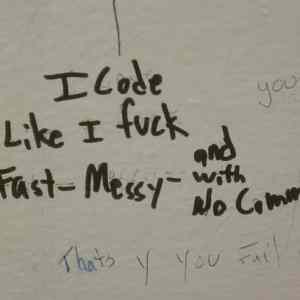 I Code
you
Like I fuck
Fast- Messy- and
with
No Comm
Thats y you Fail